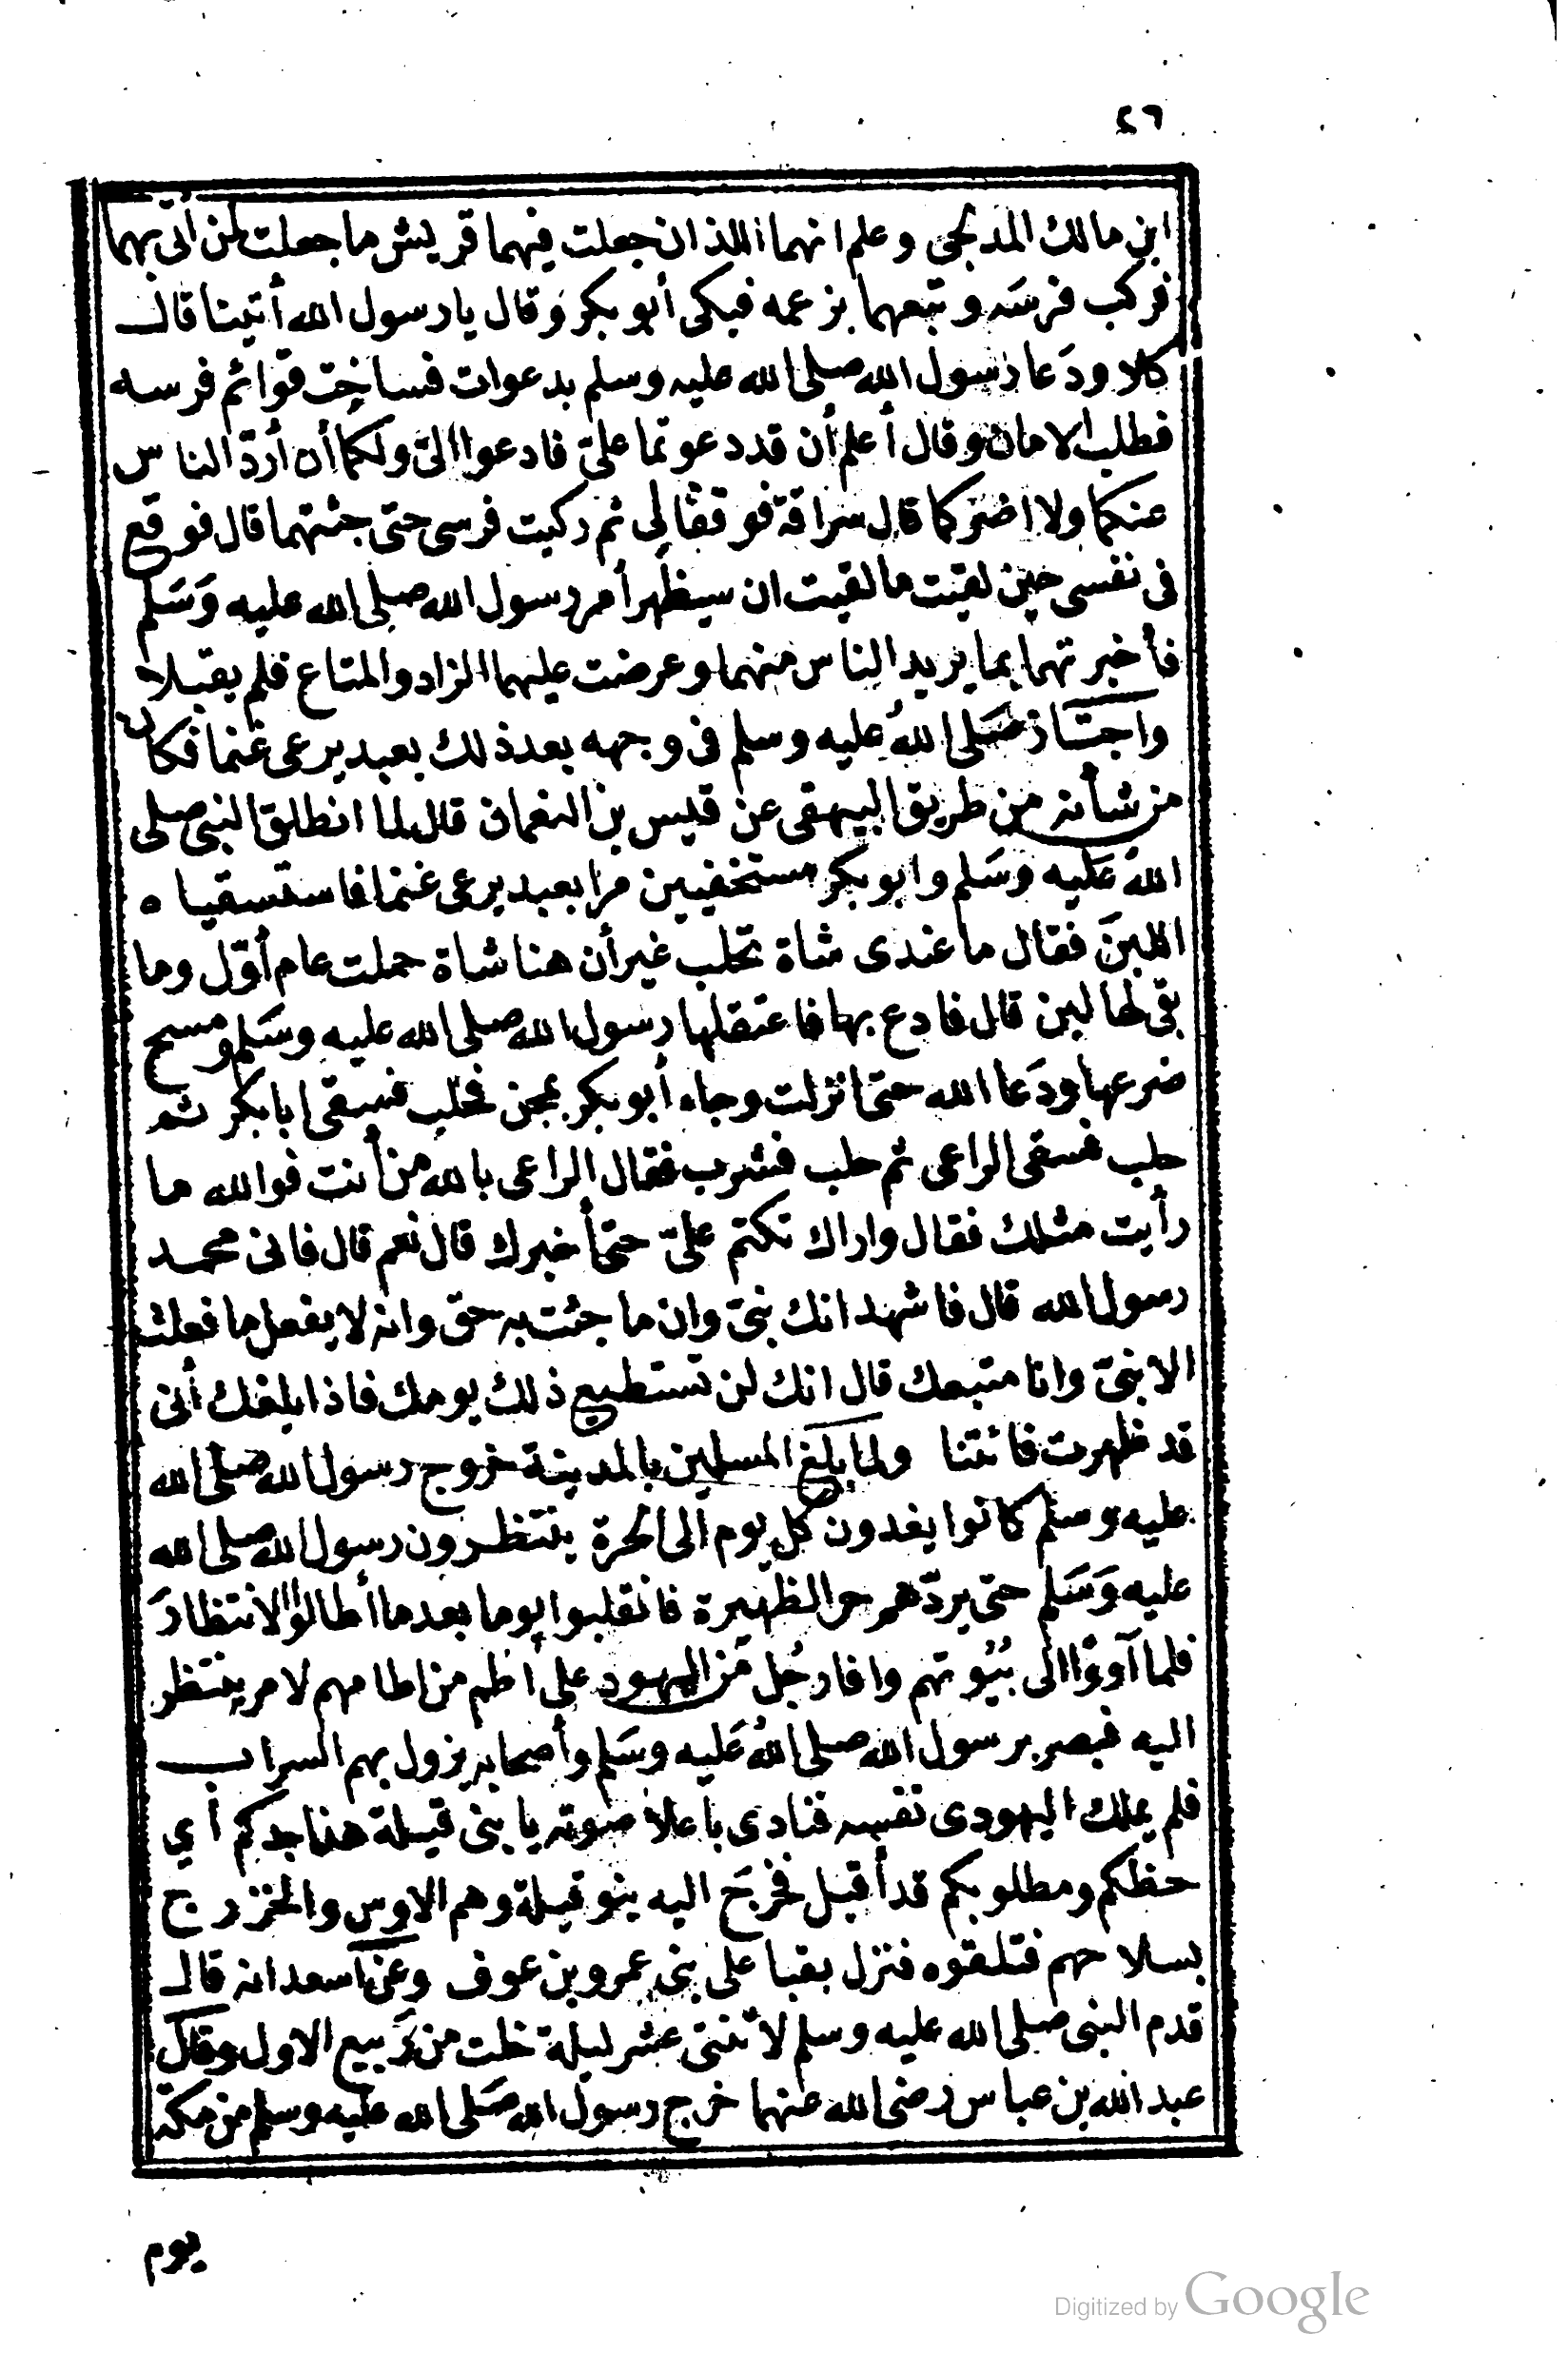 ٤٦
ابن مالك المدلجى وعلم انهما اللذان جعلت فيهما قريش ما جعلت لمن أتى بهما
فركب فرسَه وتبعهما بزعمه فبكى أبو بكر وَقال يا رسول الله أتينا قال
كلا ودَعا رَسول الله صلى الله عليه وسلم بدعوات فساخت قوائم فرسه
فطلب الامان وقال أعلم أن قد دعوتما علىّ فادعوا الىّ ولكما أن أردّ الناس
عنكما ولا اضركما قال سراقة فوقفا لى ثم ركبت فرسى حتى جئتهما قال فوقع
فى نفسى حين لقيت ما لقيت ان سيظهر أمر رسول الله صلى الله عليه وَسَلم
فأخبرتهما بما يريد الناس منهما وعرضت عليهما الزاد والمتاع فلم يقبلا
واجتَاز صَلى اللهُ عليه وسلم فى وجهه بعد ذلك بعبد يرعى غنما فكان
من شأنه من طريق البيهقى عن قيس بن النعمان قال لما انطلق النبى صلى
الله عَليه وسَلم وابو بكر مستخفيين مرا بعبد يرعى غنما فاستسقياه
اللبنَ فقال ما عندى شاة تحلب غير أن هنا شاة حملت عام أوّل وما
بقى لها لبن قال فادع بها فاعتقلها رسول الله صلى الله عليه وسَلم ومسح
ضرعها ودَعا الله حتى انزلت وجاء أبو بكر بمجن فحلب فسقى ابا بكر ثم
حلب فسقى الراعى ثم حلب فشرب فقال الراعى بالله من أنت فوالله ما
رأيت مثلك فقال واراك تكتم علىّ حتى أخبرك قال نعم قال فانى محمد
رسول الله قال فاشهد انك نبىّ وان ما جئت به حق وانه لا يفعل ما فعلت
الا نبىّ وانا متبعك قال انك لن تستطيع ذلك يومك فاذا بلغك أنى
قد ظهرت فائتنا ولما بلغ المسلمين بالمدينة خروج رسول الله صلى الله
عليه وسلم كانوا يغدون كل يوم الى الحرة ينتظرون رسول الله صلى الله
عليه وَسَلم حتى يردّهم حر الظهيرة فانقلبوا يوما بعد ما أطالوا الانتظارَ
فلما آووْا الى بُيُوتهم وافا رجُل مَن اليهود على أطم من اطامهم لامر ينتظر
اليه فبصر برسول الله صلى اللهُ عَليه وسَلم وأصحابه يزول بهم السراب
فلم يملك اليهودى نفسه فنادى باعلا صوته يا بنى قيلة هذا جدكم أي
حظكم ومطلوبكم قد أقبل فخرجَ اليه بنو قيلة وهم الاوس والخزرج
بسلاحهم فتلقوه فنزل بقبا على بنى عمرو بن عوف وعن اسعد انه قال
قدم النبى صلى الله عليه وسلم لاثنتى عشر ليلة خلت من رَبيع الاول وقال
عبد الله بن عباس رضى الله عنهما خرج رسول الله صَلى الله عليه وسلم من مكة
يوم
Digitized by Google